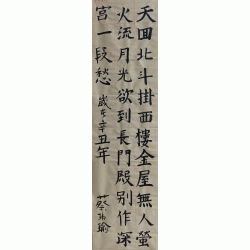 天回北斗掛西樓金屋無人螢
火流月光欲到長門殿別作深
宮一段愁 歲在辛丑年
蔡瑜